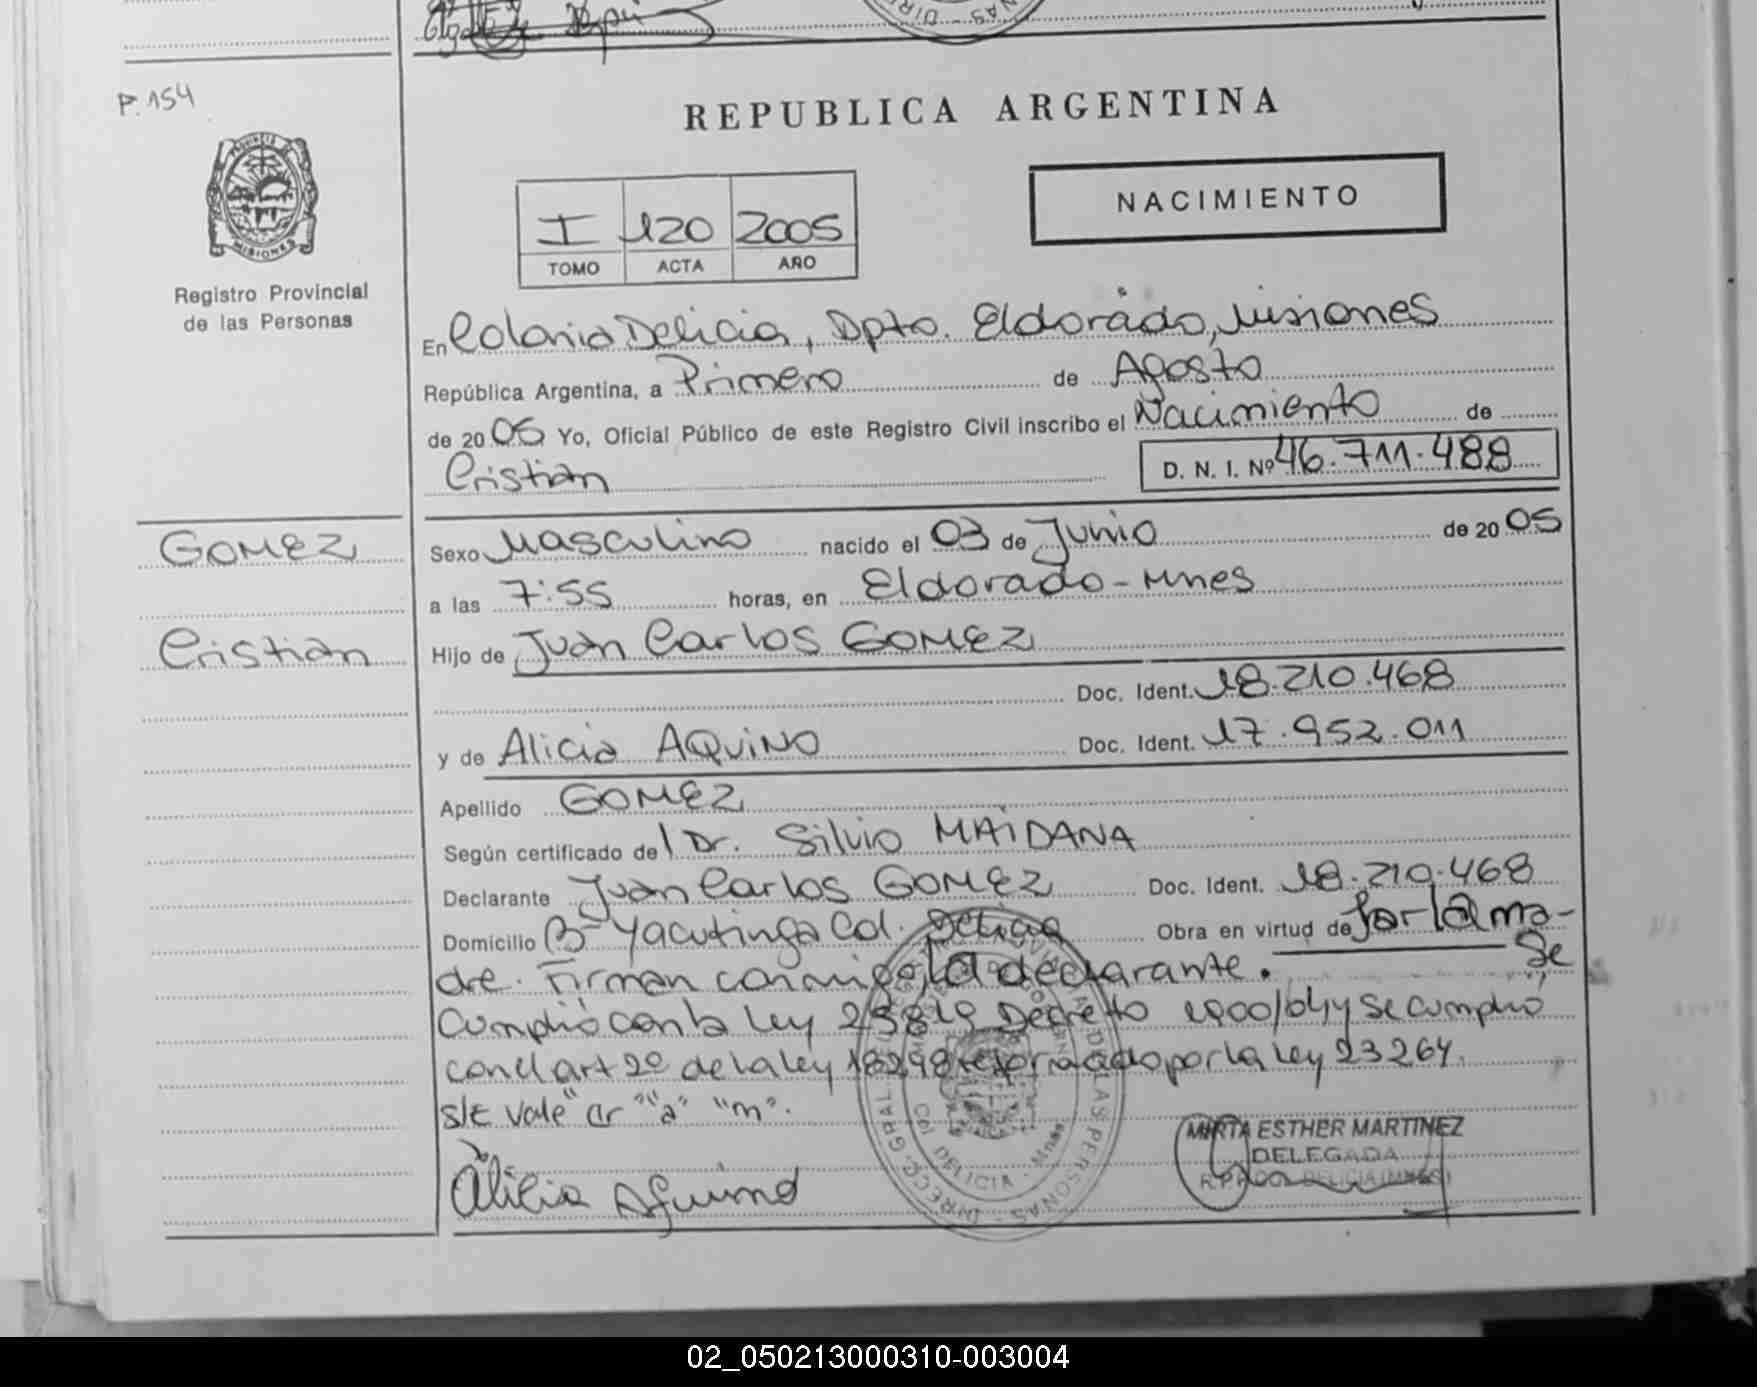 P. 154
REPUBLICA ARGENTINA
I 120 2005
TOMO ACTA AÑO
NACIMIENTO
PROVINCIA DE MISIONES
Registro Provincial
de las Personas
En Colonia Delicia, Dpto. Eldorado, Misiones
República Argentina, a Primero de Agosto
de 20 05 Yo, Oficial Público de este Registro Civil inscribo el Nacimiento de
Cristian D. N. I. Nº 46.711.488
GOMEZ
Cristian
Sexo Masculino nacido el 03 de Junio de 20 05
a las 7:55 horas, en Eldorado - Mnes
Hijo de Juan Carlos GOMEZ
Doc. Ident. 18.210.468
y de Alicia AQUINO Doc. Ident. 17.952.011
Apellido GOMEZ
Según certificado del Dr. Silvio MAIDANA
Declarante Juan Carlos GOMEZ Doc. Ident. 18.210.468
Domicilio Bº Yacutinga Col. Delicia Obra en virtud de Por la ma-
dre. Firman conmigo, la declarante. Se
Cumplió con la Ley 23819 Decreto 1900/04 y se cumplió
con el art 2º de la ley 18298 reformado por la Ley 23264.
s/E vale "cr" "a" "m".
Alicia Aquino
DIRECC. GRAL. DE LAS PERSONAS
Col DELICIA - Mnes
MIRTA ESTHER MARTINEZ
DELEGADA
R.P.P. COL DELICIA (MNES)
02_050213000310-003004